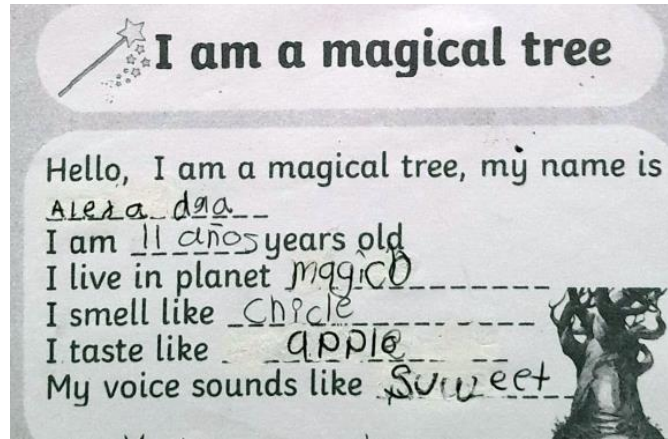 I am a magical tree
Hello, I am a magical tree, my name is
Alexa
I am 11 años years old
I live in planet magico
I smell like chicle
I taste like apple
My voice sounds like Suweet